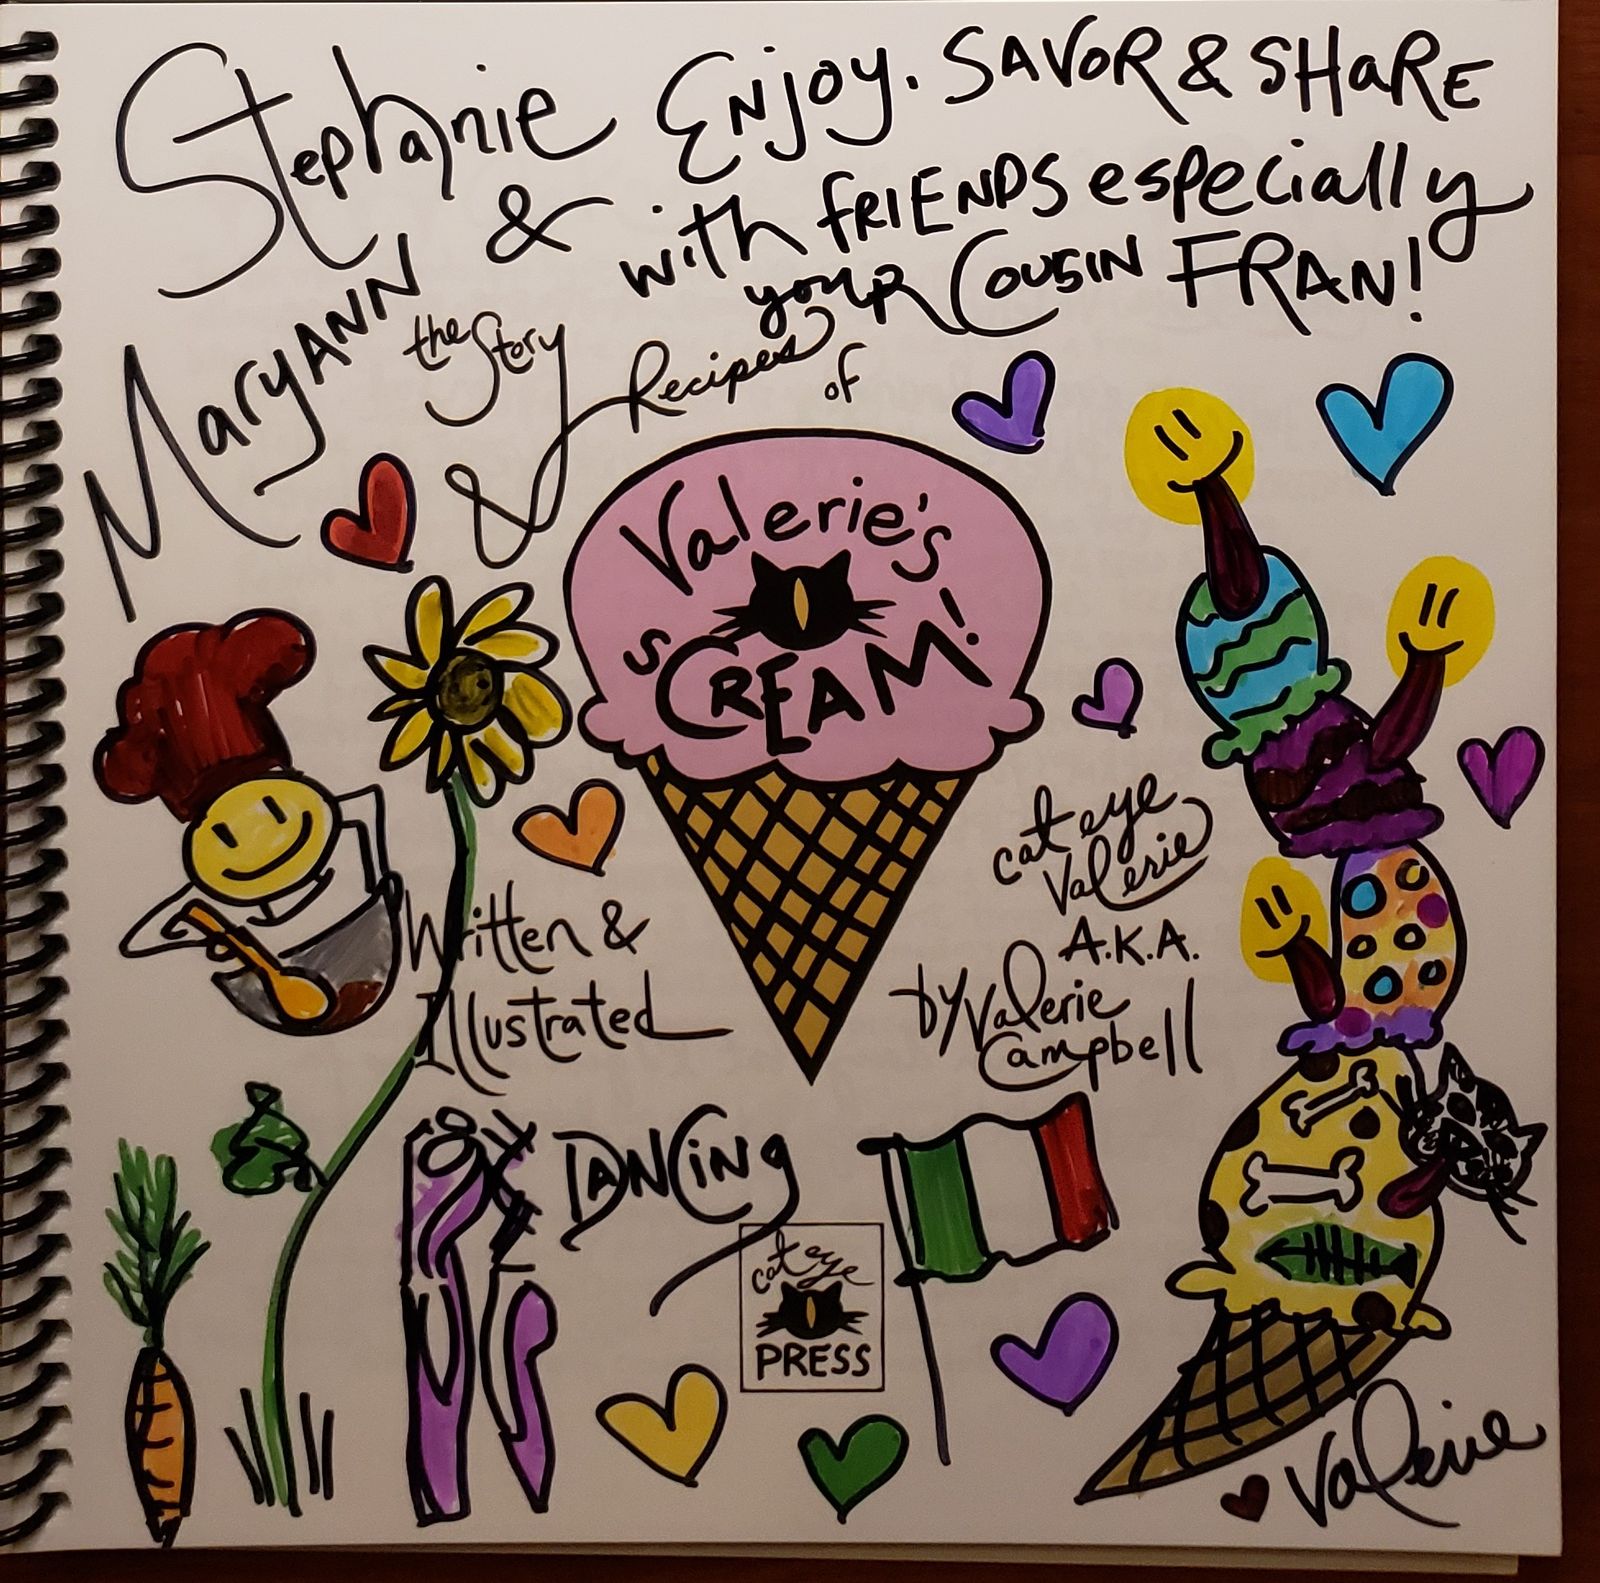 Stephanie
&
MaryANN
Enjoy. SAVOR & SHaRE
with fRIENDS especially
your COUSIN FRAN!
the Story
& Recipes
of
Valerie's
sCREAM!
cat eye
Valerie
A.K.A.
Written &
Illustrated
by Valerie
Campbell
DANCing
cat eye
PRESS
Valerie